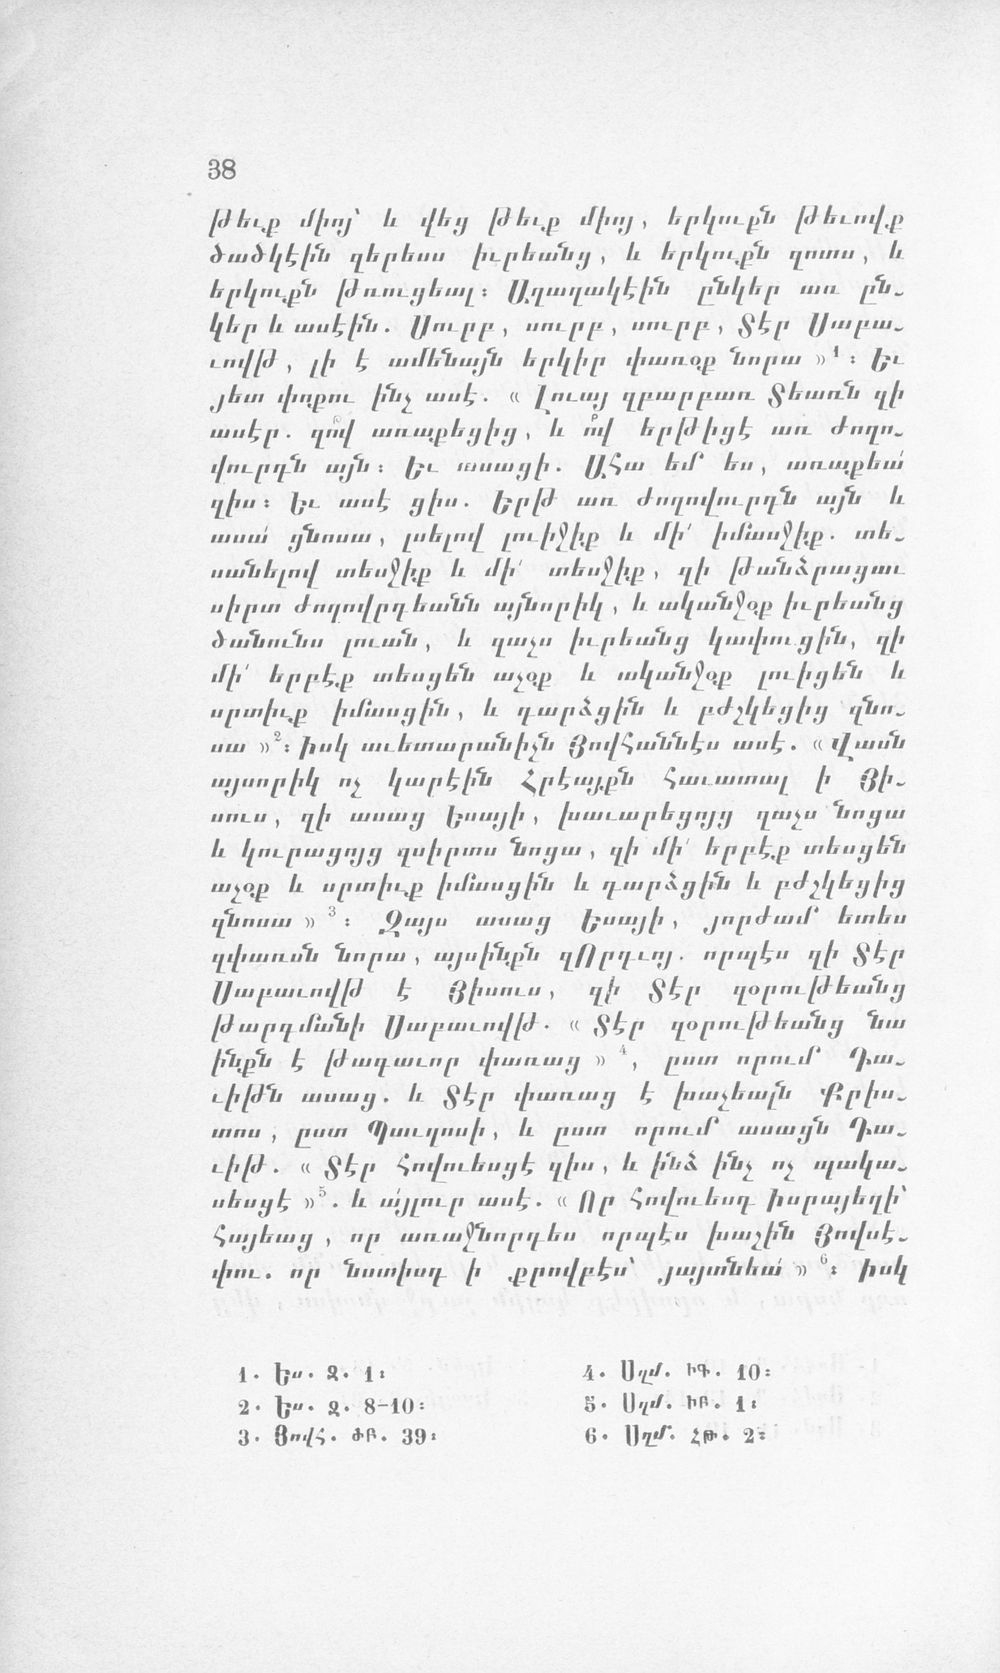 38
թեւք միոյ՝ և վեց թեւք միոյ, երկուքն թեւովք
ծածկէին զերեսս իւրեանց, և երկուքն զոտս, և
երկուքն թռուցեալ։ Աղաղակէին ընկեր առ ըն֊
կեր և ասէին. Սուրբ, սուրբ, սուրբ, Տէր Սաբա֊
ւովթ, լի է ամենայն երկիր փառօք նորա »1։ Եւ
յետ փոքու ինչ ասէ. « Լուայ զբարբառ Տեառն զի
ասէր. զո՞վ առաքեցից, և ո՞վ երթիցէ առ ժողո֊
վուրդն այն։ Եւ ասացի. Ահա եմ ես, առաքեա՛
զիս։ Եւ ասէ ցիս. Երթ առ ժողովուրդն այն և
ասա՛ ցնոսա, լսելով լուիջիք և մի՛ իմասջիք. տե֊
սանելով տեսջիք և մի՛ տեսջիք, զի թանձրացաւ
սիրտ ժողովրդեանն այնորիկ, և ականջօք իւրեանց
ծանունս լուան, և զաչս իւրեանց կափուցին, զի
մի՛ երբէք տեսցեն աչօք և ականջօք լուիցեն և
սրտիւք իմասցին, և դարձցին և բժշկեցից զնո֊
սա »2։ իսկ աւետարանիչն Յովհաննէս ասէ. « Վասն
այսորիկ ոչ կարէին Հրէայքն հաւատալ ի Յի֊
սուս, զի ասաց Եսայի, խաւարեցոյց զաչս նոցա
և կուրացոյց զսիրտս նոցա, զի մի՛ երբէք տեսցեն
աչօք և սրտիւք իմասցին և դարձցին և բժշկեցից
զնոսա » 3։ Զայս ասաց Եսայի, յորժամ ետես
զփառսն նորա, այսինքն զՈրդւոյ. որպէս զի Տէր
Սաբաւովթ է Յիսուս, զի Տէր զօրութեանց
թարգմանի Սաբաւովթ. « Տէր զօրութեանց նա
ինքն է թագաւոր փառաց » 4, ըստ որում Դա֊
ւիթն ասաց. և Տէր փառաց է խաչեալն Քրիս֊
տոս, ըստ Պաւղոսի, և ըստ որում ասացն Դա֊
ւիթ. « Տէր հովուեսցէ զիս, և ինձ ինչ ոչ պակա֊
սեսցէ »5. և այլուր ասէ. « Որ հովուեսդ իսրայեղի՝
հայեաց, որ առաջնորդես որպէս խաչին Յովսէ֊
փու. որ նստիսդ ի քրովբէս՝ յայտնեա՛ » 6։ իսկ
1. Ես. Զ. 1։
2. Ես. Զ. 8-10։
3. Յովհ. ԺԲ. 39։
4. Սղմ. ԻԳ. 10։
5. Սղմ. ԻԲ. 1։
6. Սղմ. ՀԹ. 2։